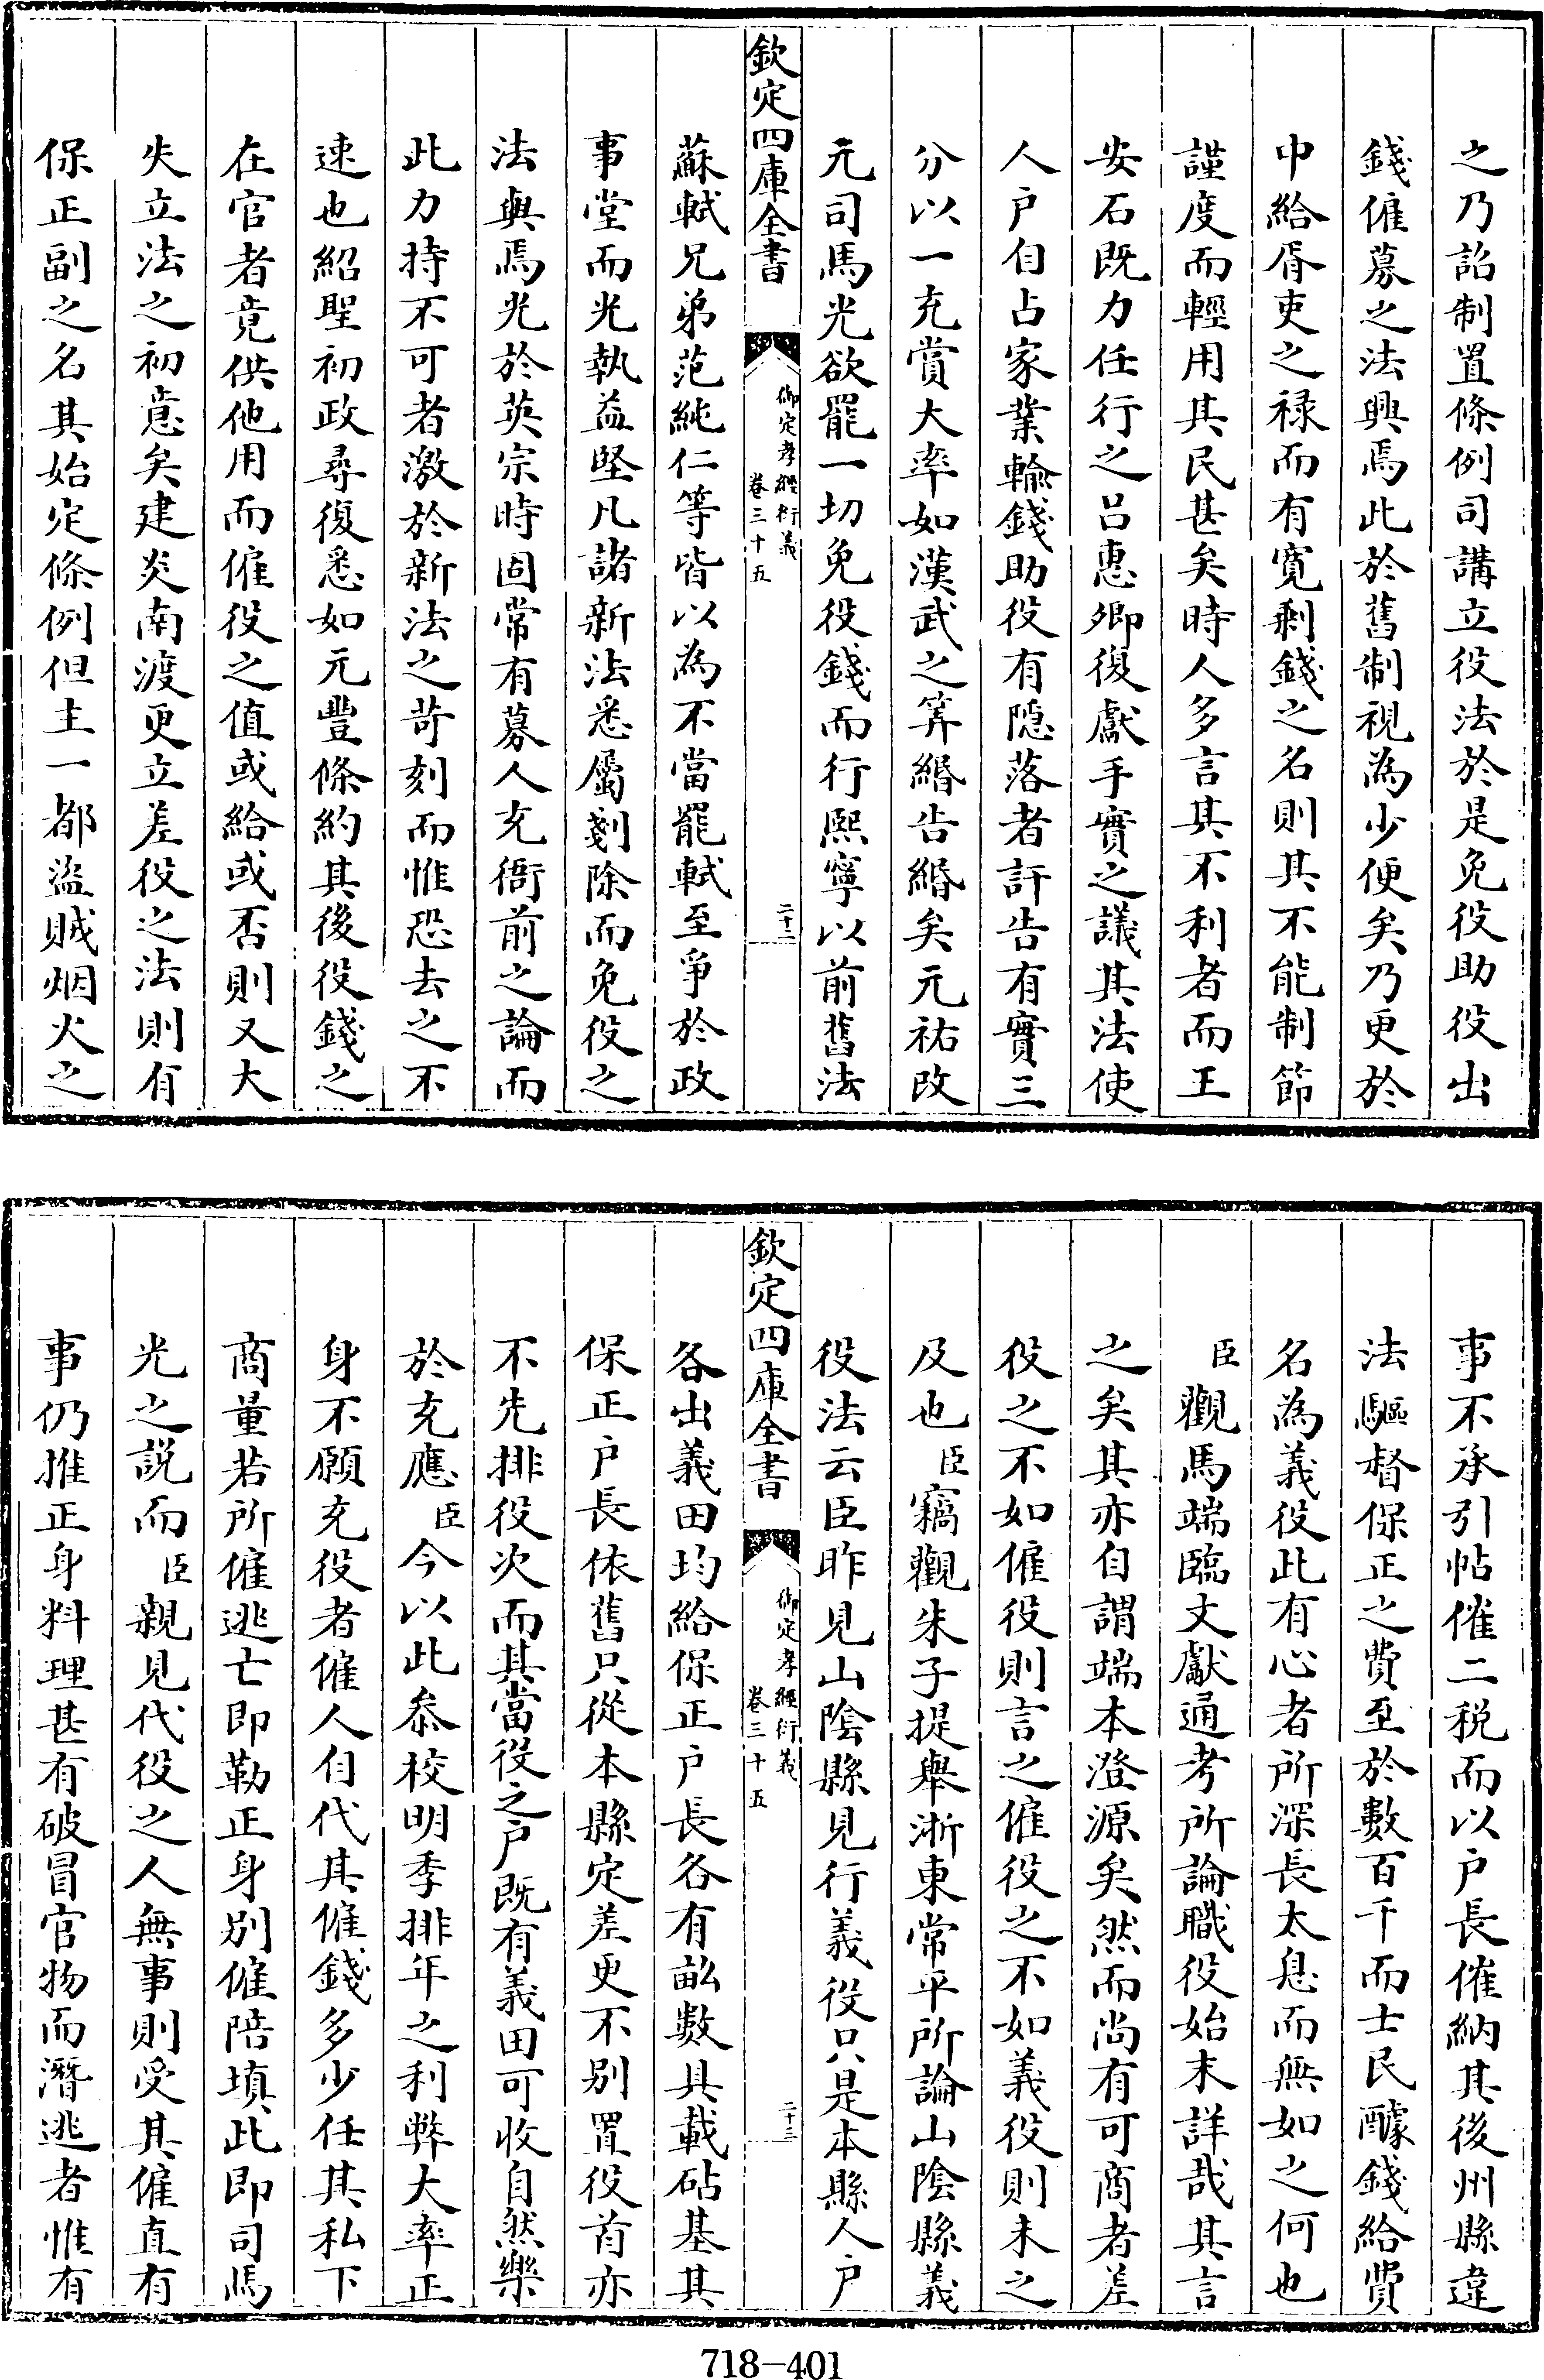 之乃詔制置條例司講立役法於是免役助役出
錢僱募之法興焉此於舊制視為少便矣乃更於
中給胥吏之祿而有寬剩錢之名則其不能制節
謹度而輕用其民甚矣時人多言其不利者而王
安石既力任行之吕惠卿復獻手實之議其法使
人户自占家業輸錢助役有隱落者訐告有實三
分以一充賞大率如漢武之筭緡告緡矣元祐改
元司馬光欲罷一切免役錢而行熙寧以前舊法
欽定四庫全書
御定孝經衍義
卷三十五
二十二
蘇軾兄弟范純仁等皆以為不當罷軾至爭於政
事堂而光執益堅凡諸新法悉屬剗除而免役之
法與焉光於英宗時固常有募人充衙前之論而
此力持不可者激於新法之苛刻而惟恐去之不
速也紹聖初政尋復悉如元豐條約其後役錢之
在官者竟供他用而僱役之值或給或否則又大
失立法之初意矣建炎南渡更立差役之法則有
保正副之名其始定條例但主一都盜賊烟火之
事不承引帖催二税而以户長催納其後州縣違
法驅督保正之費至於數百千而士民醵錢給費
名為義役此有心者所深長太息而無如之何也
臣觀馬端臨文獻通考所論職役始末詳哉其言
之矣其亦自謂端本澄源矣然而尚有可商者差
役之不如僱役則言之僱役之不如義役則未之
及也臣竊觀朱子提舉浙東常平所論山陰縣義
役法云臣昨見山陰縣見行義役只是本縣人户
欽定四庫全書
御定孝經衍義
卷三十五
二十三
各出義田均給保正户長各有畝數具載砧基其
保正户長依舊只從本縣定差更不别置役首亦
不先排役次而其當役之户既有義田可收自然樂
於充應臣今以此叅校明季排年之利弊大率正
身不願充役者僱人自代其僱錢多少任其私下
商量若所僱逃亡即勒正身别僱陪填此即司馬
光之説而臣親見代役之人無事則受其僱直有
事仍推正身料理甚有破冒官物而潛逃者惟有
718-401